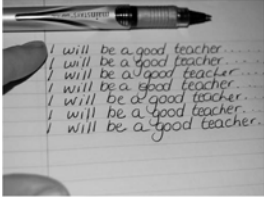 I will be a good teacher......
I will be a good teacher.....
I will be a good teacher....
I will be a good teacher....
I will be a good teacher....
I will be a good teacher...
I will be a good teacher.